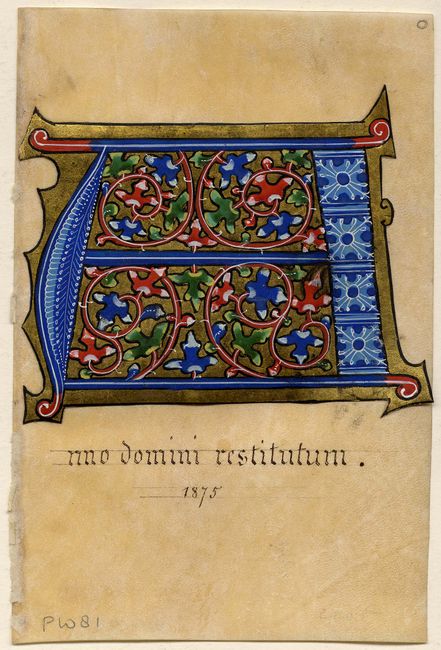 A
nno domini restitutum.
1875
PW81